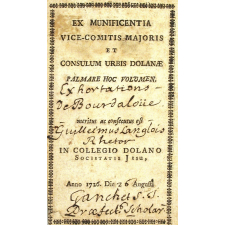 EX MUNIFICENTIA
VICE-COMITIS MAJORIS
ET
CONSULUM URBIS DOLANÆ
PALMARE HOC VOLUMEN,
Exhortations
de Bourdaloüe
meritus ac consecutus est
Guillelmus Langlois
Rhetor
IN COLLEGIO DOLANO
SOCIETATIS JESU,
Anno 1726. Die 26 Augusti
Ganchet S. J.
Præfect. Scholar.